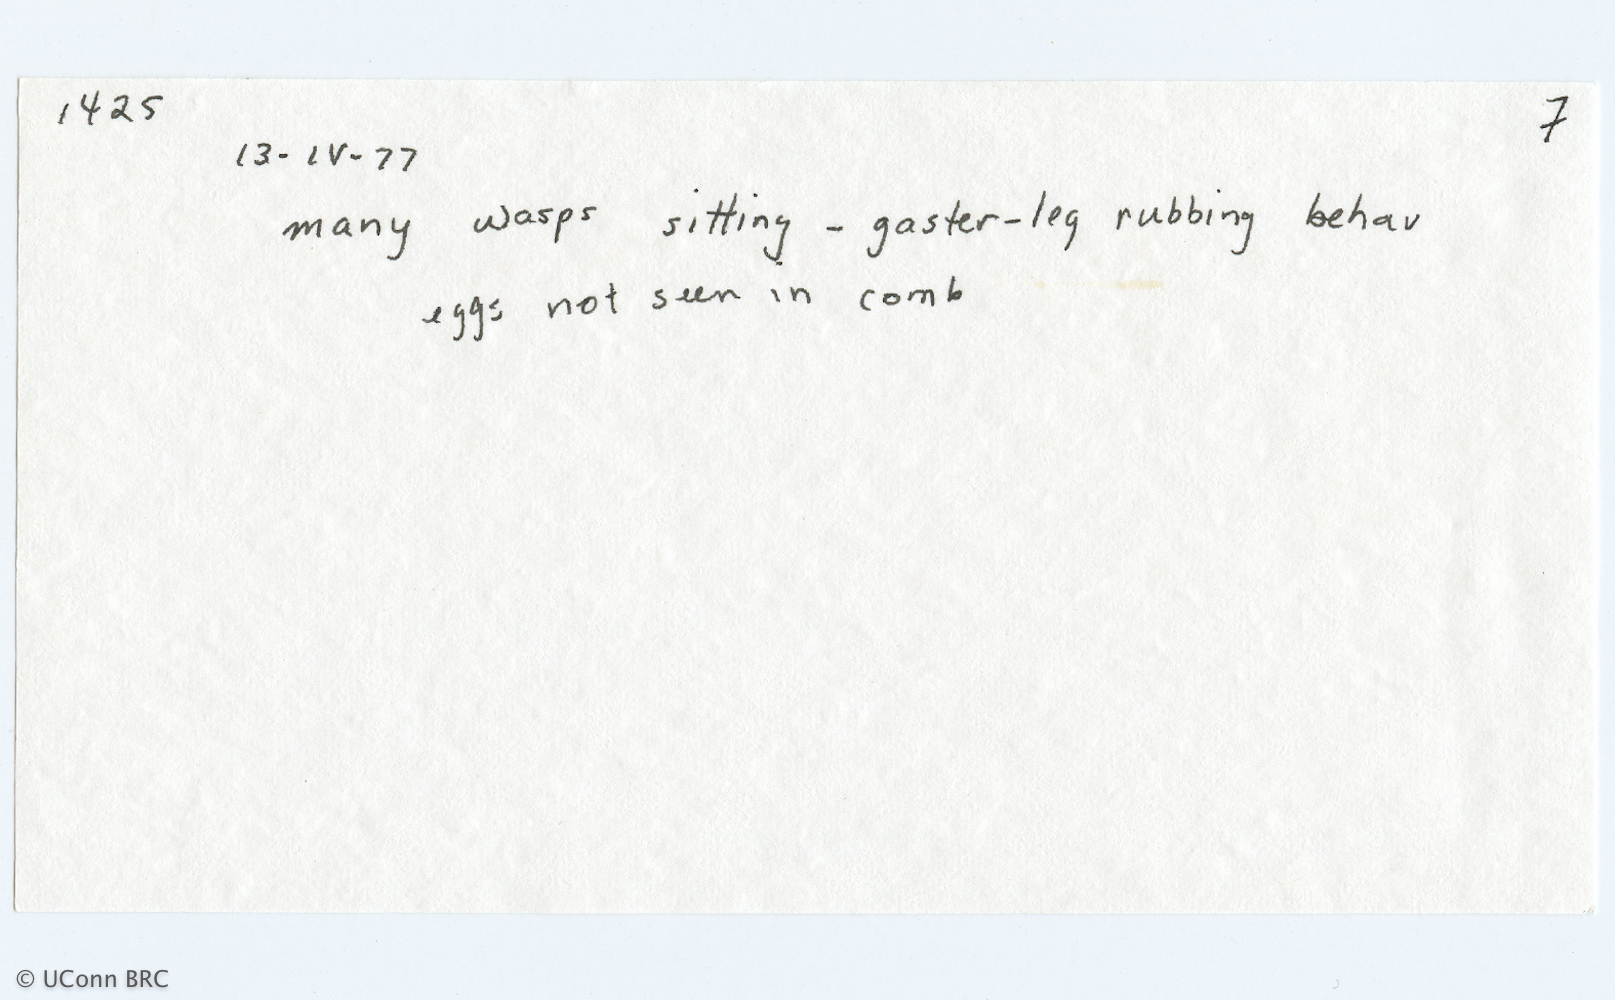 1425 7
13-IV-77
many wasps sitting - gaster-leg rubbing behav
eggs not seen in comb
© UConn BRC